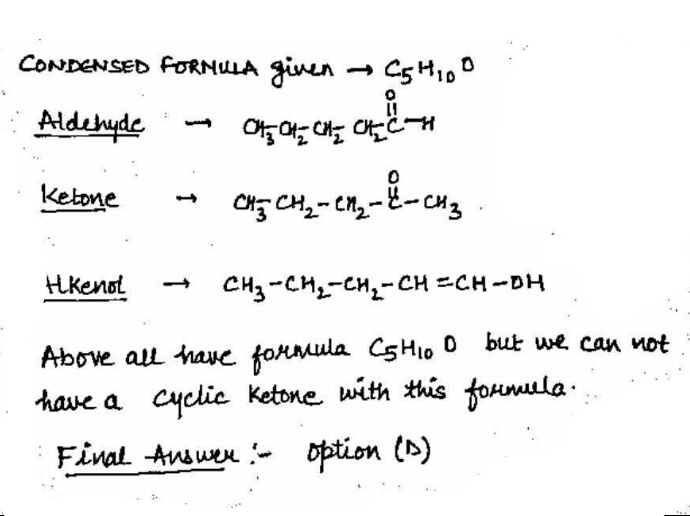 CONDENSED FORMULA given → C5H10O
O
Aldehyde → CH3-CH2-CH2-CH2-C-H
O
Ketone → CH3-CH2-CH2-C-CH3
Alkenol → CH3-CH2-CH2-CH=CH-OH
Above all have formula C5H10O but we can not
have a cyclic ketone with this formula.
Final Answer :- option (D)